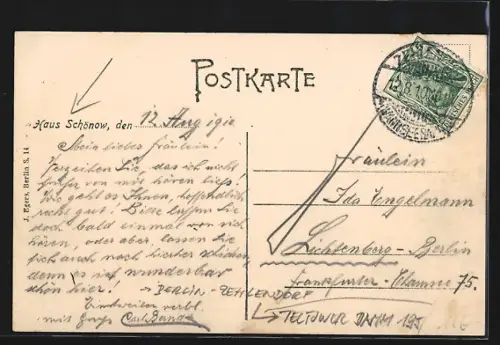 POSTKARTE
Haus Schönow, den 12 Aug 1910
Mein liebes Fräulein!
Verzeihen Sie, das ich nicht
früher von mir hören ließ!
Wie geht es Ihnen, hoffentlich
recht gut. Bitte lassen Sie
doch bald einmal von sich
hören, oder aber lassen Sie
sich auch noch hierher schicken,
denn es ist wunderbar
schön hier!
Einstweilen verbl.
mit Gruß Carl
J. Egers, Berlin S. 14
Fräulein
Ida Engelmann
Lichtenberg-Berlin
Frankfurter-Chaussee 75.
→ BERLIN-ZEHLENDORF
↳ TELTOWER DAMM 195
12.8.10